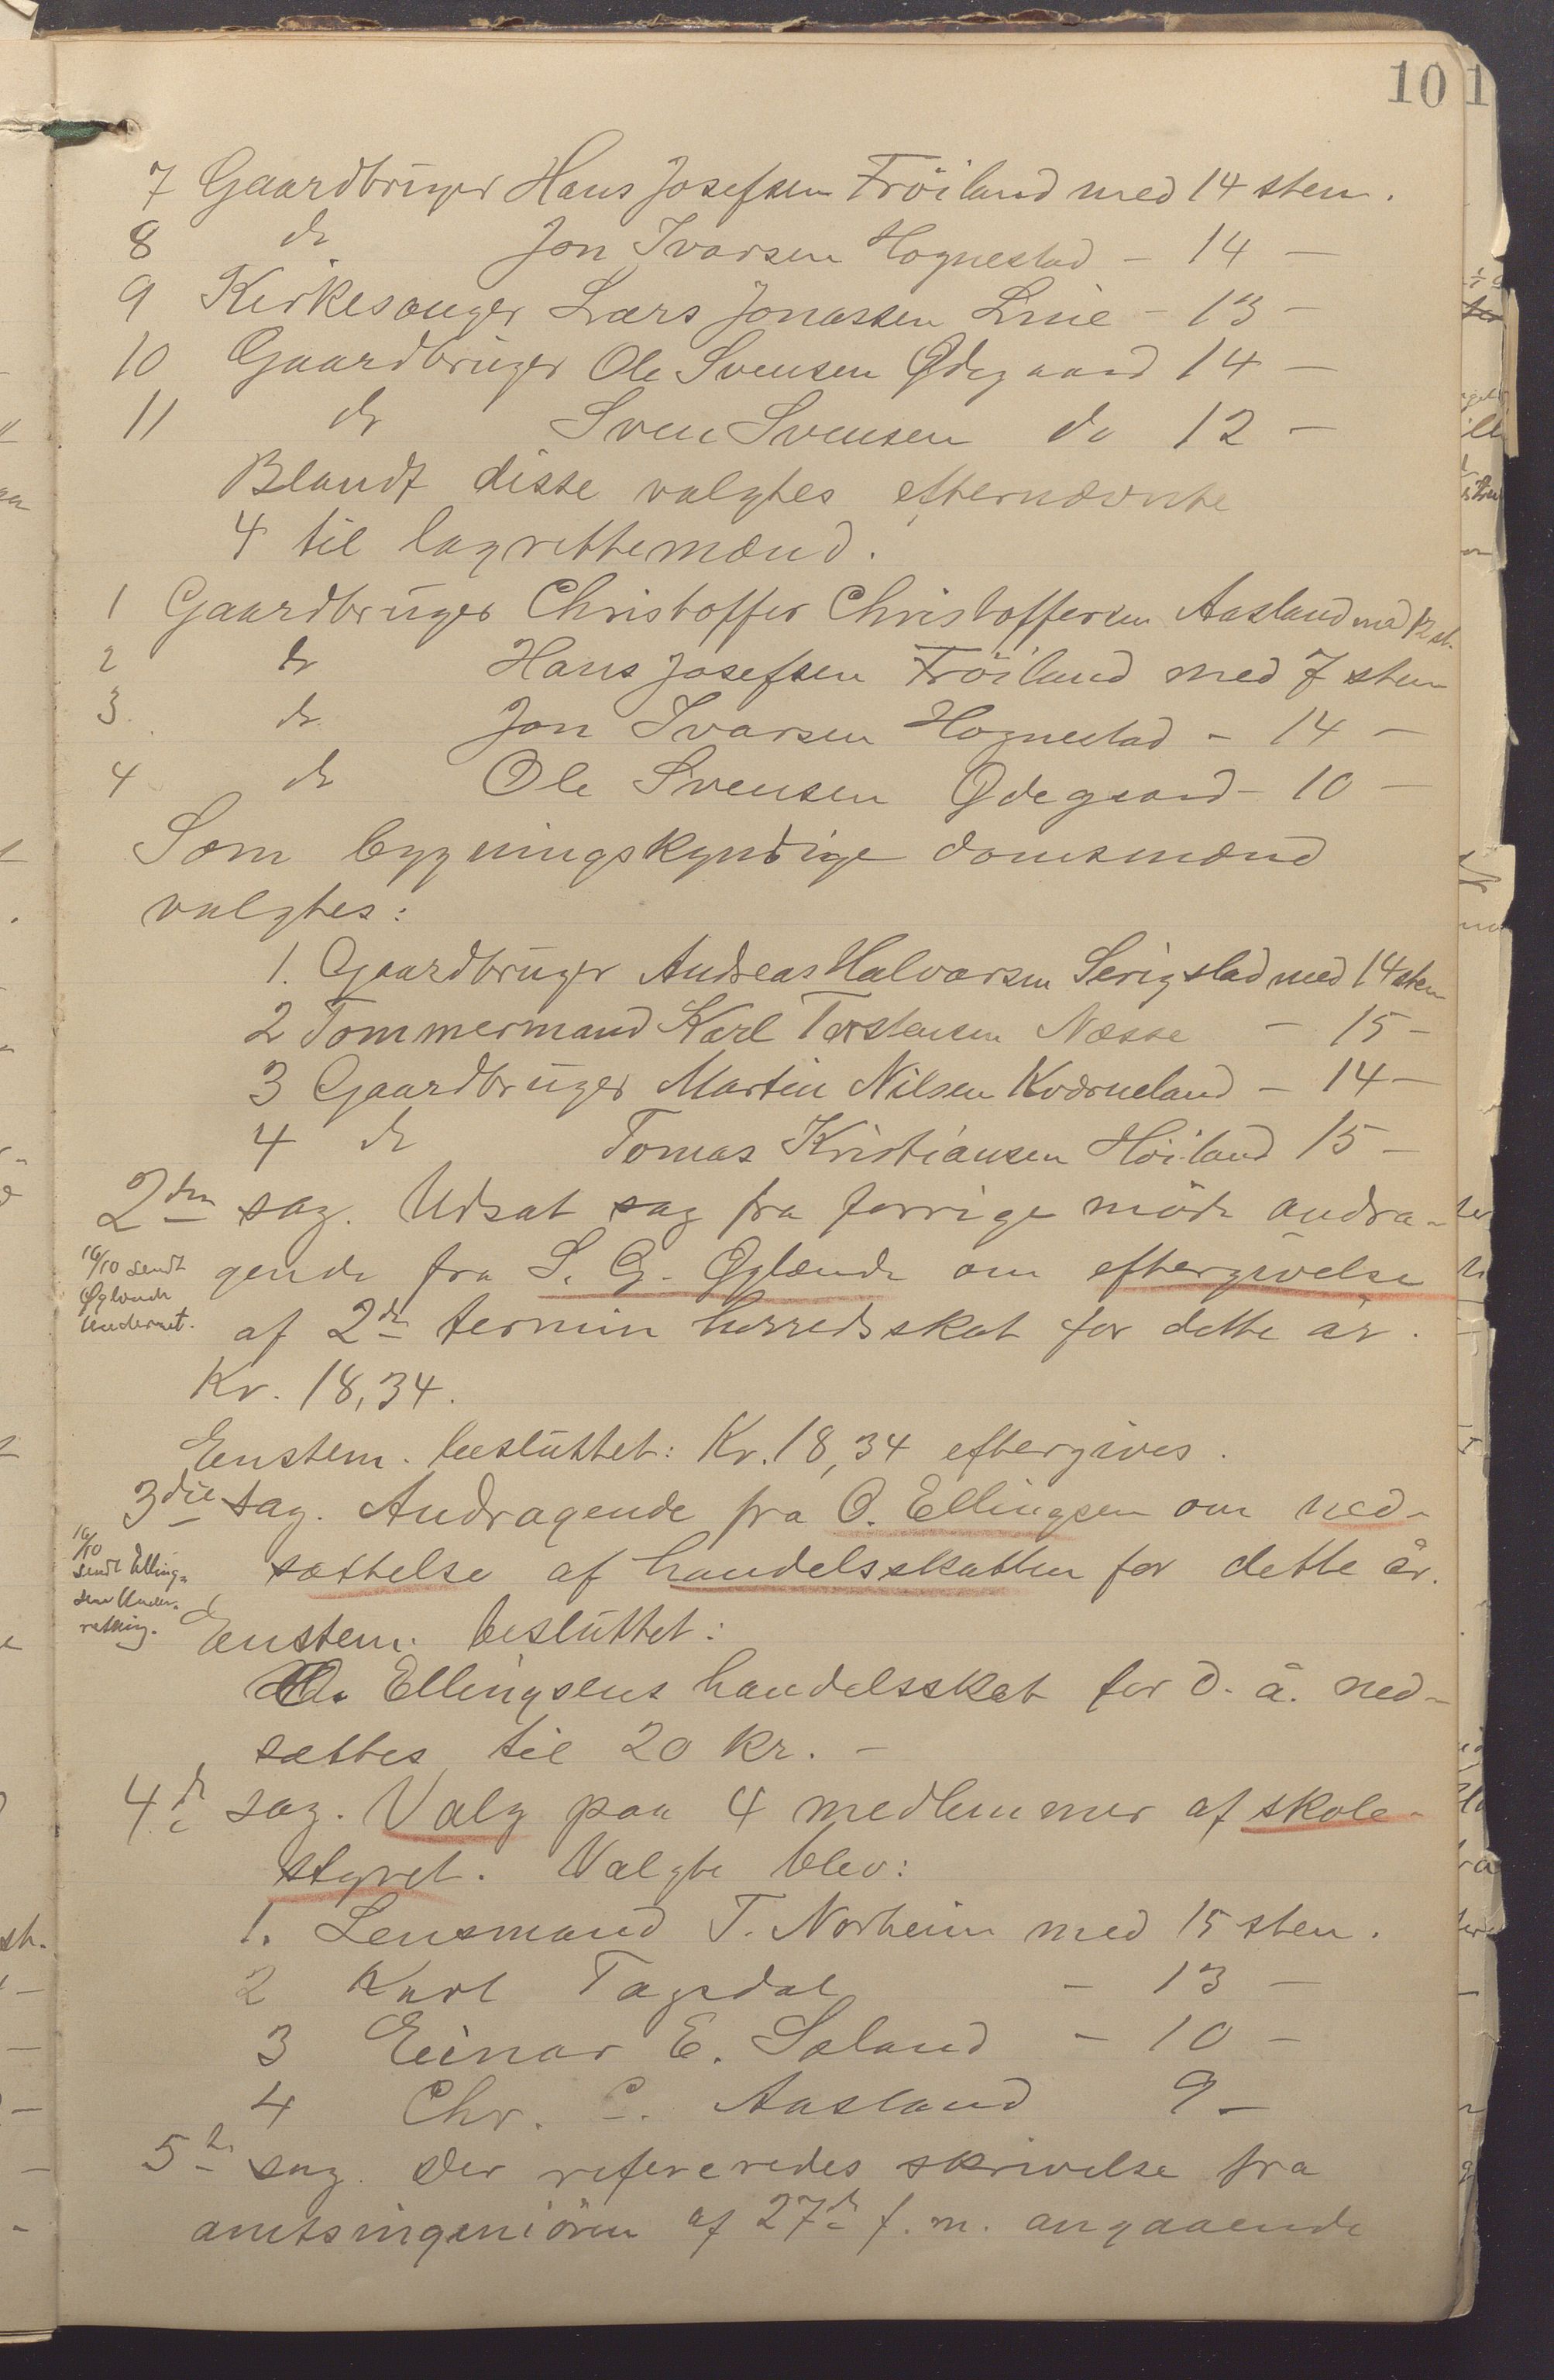 10
7 Gaardbruger Hans Josefsen Fröiland med 14 stem.
8 do Jon Ivarsen Hognestad - 14 -
9 Kirkesanger Lars Jonassen Line - 13 -
10 Gaardbruger Ole Svensen Ødegaard 14 -
11 do Sven Svensen do 12 -
Blandt disse valgtes efternævnte
4 til lagrettemænd.
1 Gaardbruger Christoffer Christoffersen Aasland med 12 st.
2 do Hans Josefsen Fröiland med 7 stem
3. do Jon Ivarsen Hognestad - 14 -
4 do Ole Svensen Ødegaard - 10 -
Som bygningskyndige domsmænd
valgtes:
1. Gaardbruger Andreas Halvorsen Serigstad med 14 stem
2 Tommermand Karl Torstensen Næsse - 15 -
3 Gaardbruger Martin Nilsen Kværneland - 14 -
4 do Tomas Kristiansen Höiland 15 -
2den sag. Udsat sag fra forrige möde andra-
gende fra S. G. Øglænde om eftergivelse
16/10 sendt
Øglænde
underret.
af 2de termin herredsskat for dette år.
Kr. 18,34.
Enstem. besluttet: Kr. 18,34 eftergives.
3die sag. Andragende fra O. Ellingsen om ned-
sættelse af handelsskatten for dette år.
16/10
sendt Elling-
sen Under-
retning.
Enstem. besluttet:
O. Ellingsens handelsskat for d. å. ned-
sættes til 20 kr. -
4de sag. Valg paa 4 medlemmer af skole-
styret. Valgte blev:
1. Lensmand T. Norheim med 15 stem.
2 Karl Tagsdal - 13 -
3 Einar E. Søland - 10 -
4 Chr. C. Aasland 9 -
5te sag. Der refereredes skrivelse fra
amtsingeniören af 27de f. m. angaaende